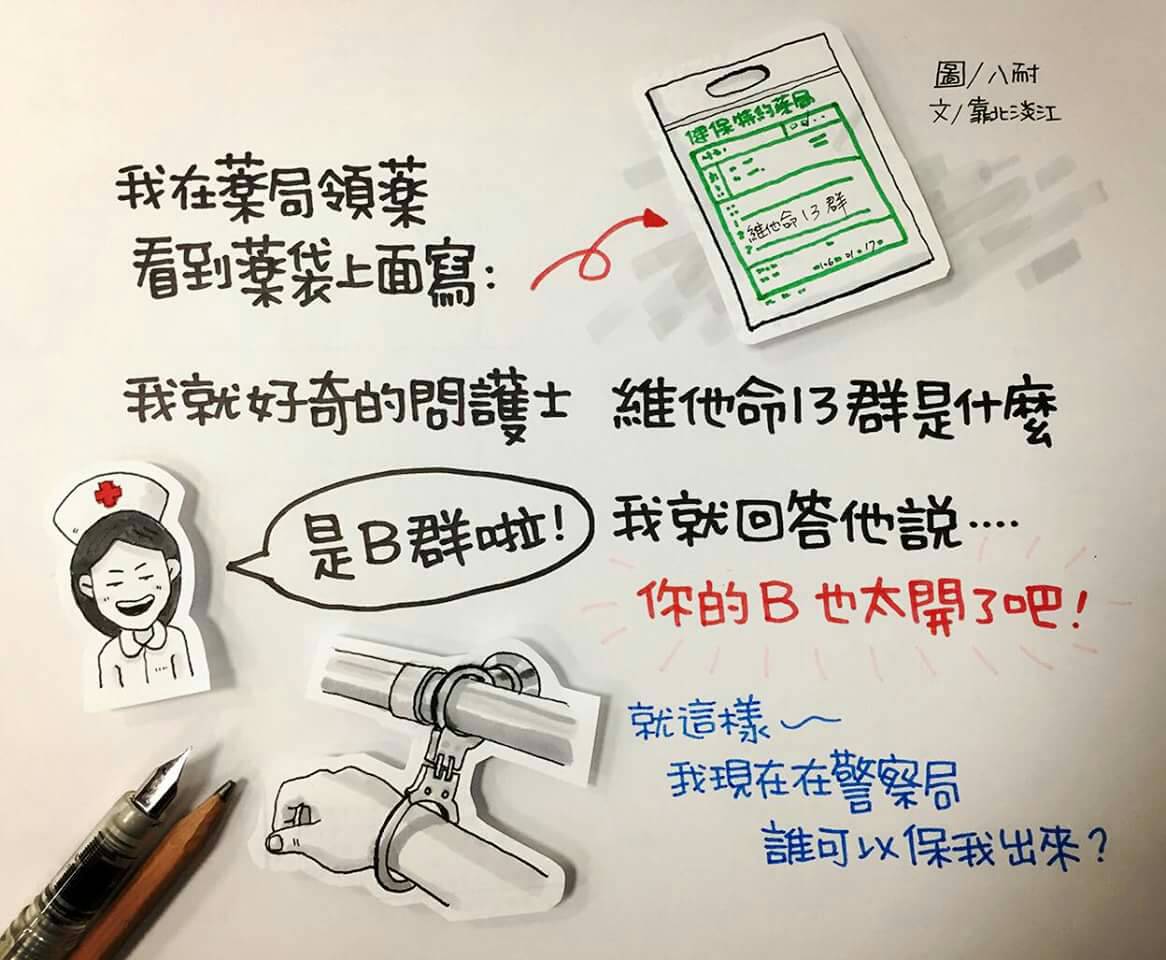 圖/八耐
文/靠北淡江
我在藥局領藥
看到藥袋上面寫:
健保特約藥局
維他命13群
我就好奇的問護士 維他命13群是什麼
是B群啦!
我就回答他說....
你的B也太開了吧!
就這樣~
我現在在警察局
誰可以保我出來?